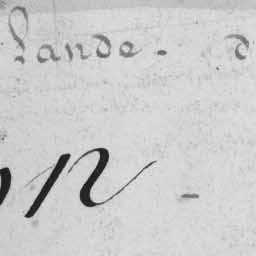 Lande. d
on -